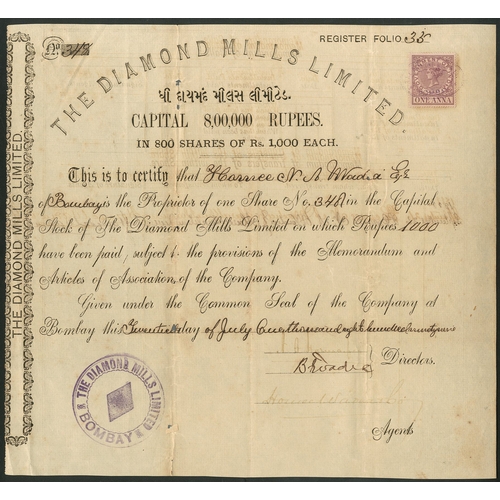 No. 348
REGISTER FOLIO 35
THE DIAMOND MILLS LIMITED.
ધી ડાયમંડ મીલસ લીમીટેડ.
CAPITAL 8,00,000 RUPEES.
IN 800 SHARES OF Rs. 1,000 EACH.
ONE ANNA
This is to certify that N. A. Wadia Esq
of Bombay is the Proprietor of one Share No. 348 in the Capital
Stock of The Diamond Mills Limited on which Rupees 1000
have been paid, subject to the provisions of the Memorandum and
Articles of Association, of the Company.
Given under the Common Seal of the Company at
Bombay this day of July One thousand eight hundred
Directors.
Agents
THE DIAMOND MILLS LIMITED
BOMBAY
THE DIAMOND MILLS LIMITED.